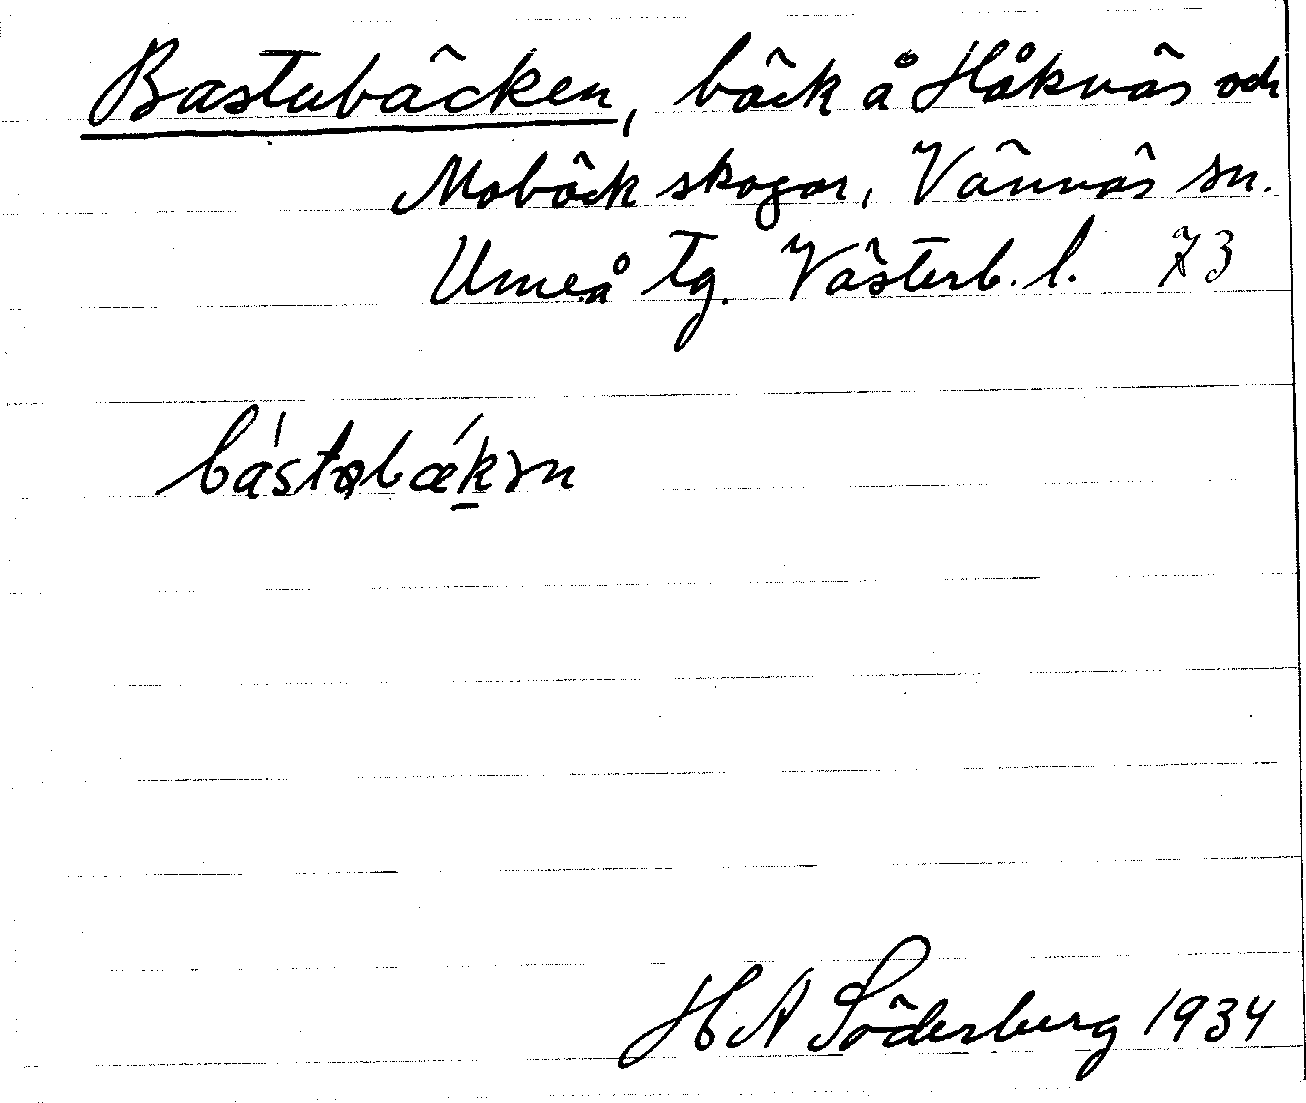 Bastubäcken, bäck å Håknäs och
Mobäck skogar, Vännäs sn.
Umeå tg. Västerb. l. 73
H A Söderberg 1934